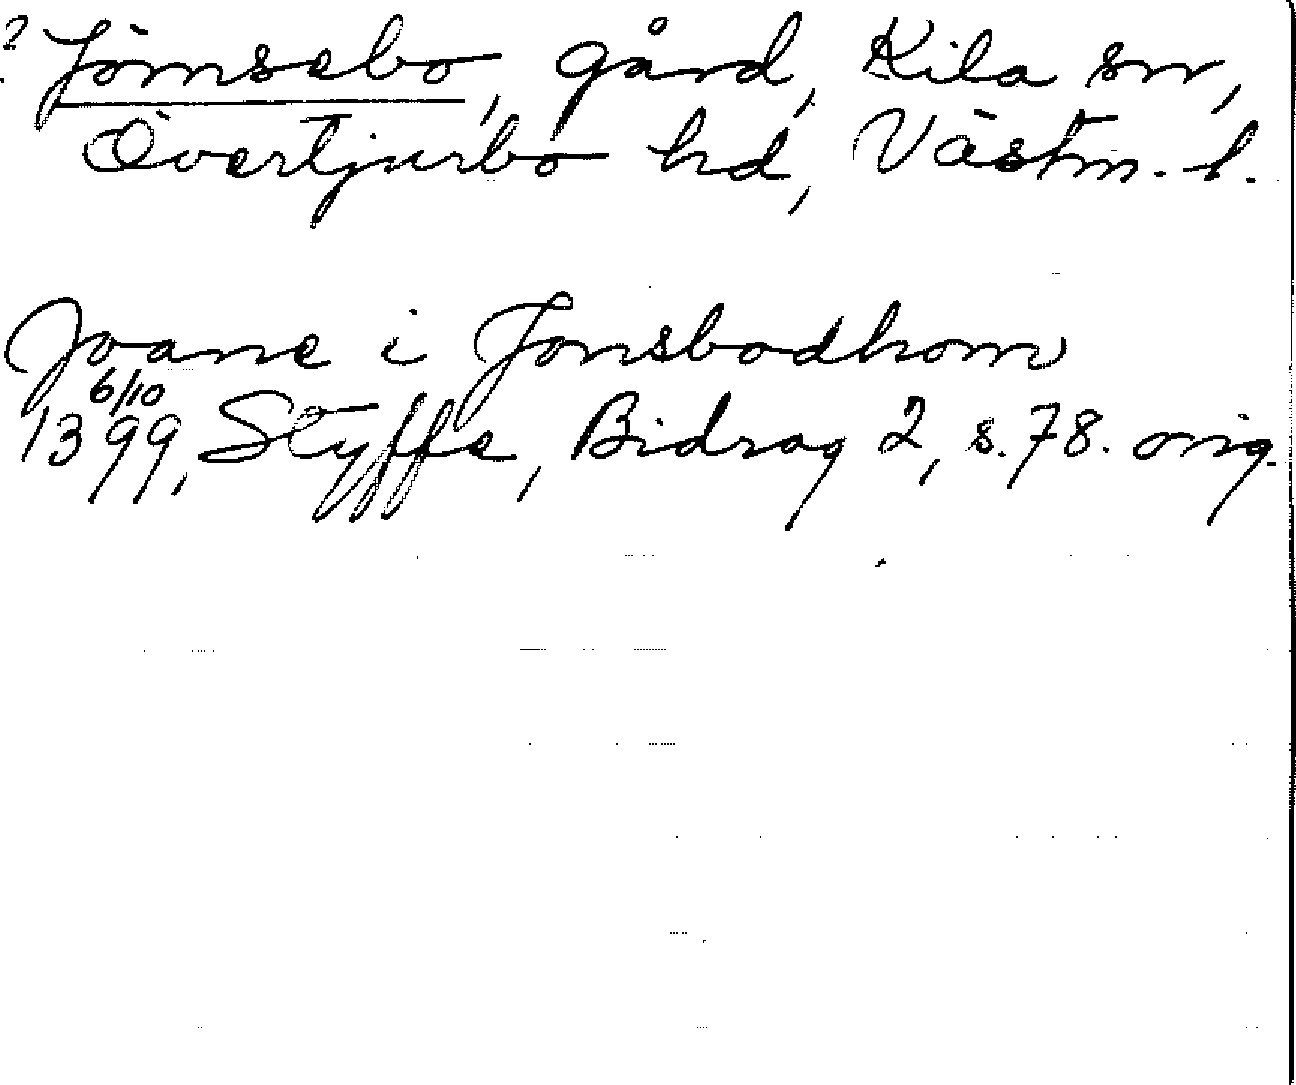 ? Jömsebo, gård, Kila sn,
Övertjurbo hd, Västm. l.
Joane i Jonsbodhom
6/10
1399, Styffe, Bidrag 2, s. 78. orig.